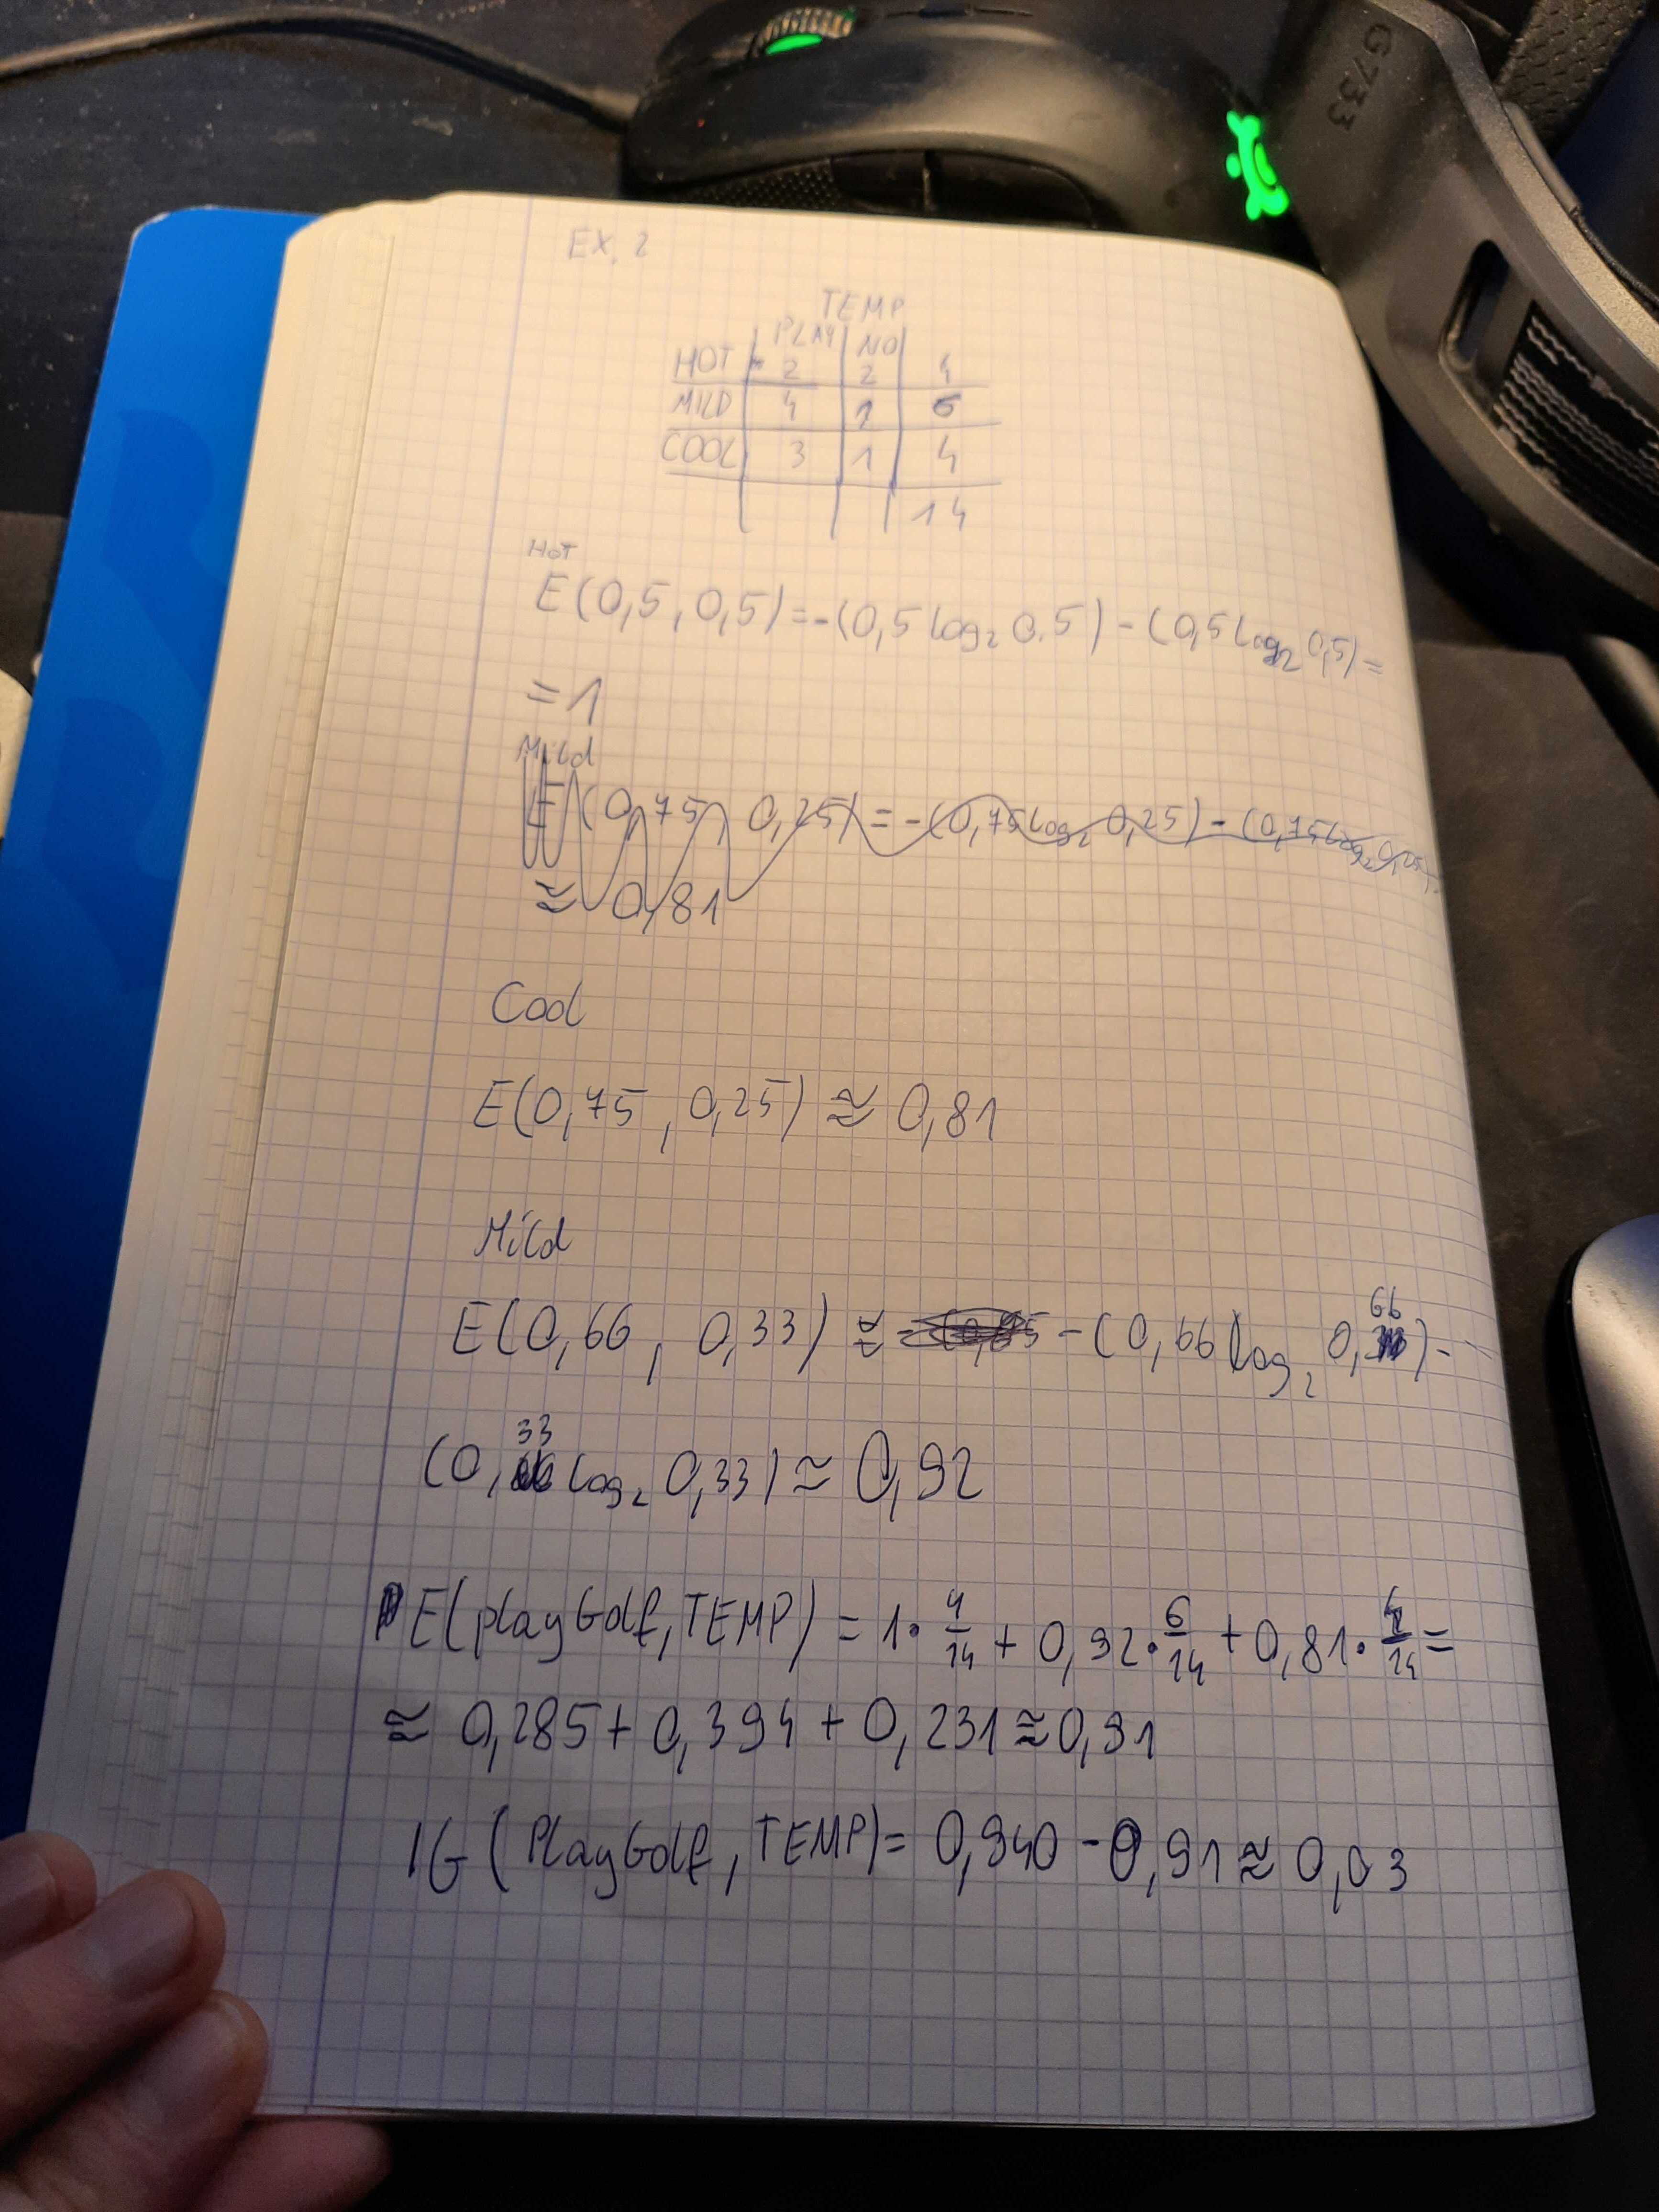 G733
EX. 2
TEMP
PLAY NO
HOT 2 2 4
MILD 4 1 6
COOL 3 1 4
14
HOT
E(0,5, 0,5) = -(0,5 log₂ 0.5) - (0,5 log₂ 0,5) =
= 1
Mild
E(0,75, 0,25) = -(0,75 log₂ 0,25) - (0,75 log₂ 0,25)
≈ 0,81
Cool
E(0,75, 0,25) ≈ 0,81
Mild
E(0,66, 0,33) ≈ -(0,66 log₂ 0,66) -
(0,33 log₂ 0,33) ≈ 0,92
E(playGolf, TEMP) = 1 · 4/14 + 0,92 · 6/14 + 0,81 · 4/14 =
≈ 0,285 + 0,394 + 0,231 ≈ 0,91
IG(PlayGolf, TEMP) = 0,940 - 0,91 ≈ 0,03